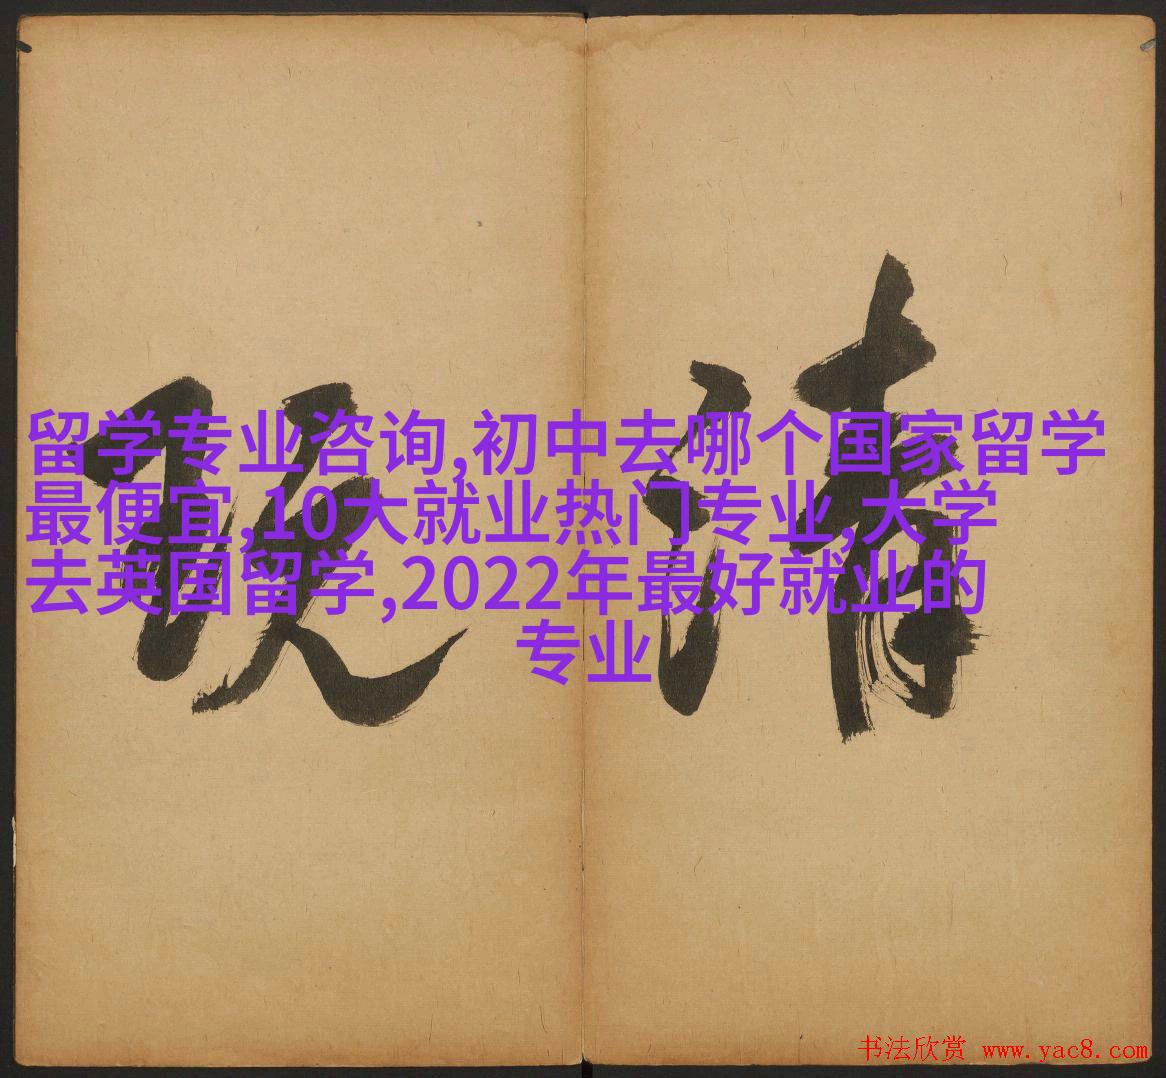 清玩
留学专业咨询,初中去哪个国家留学
最便宜,10大就业热门专业,大学
去英国留学,2022年最好就业的
专业
书法欣赏 www.yac8.com